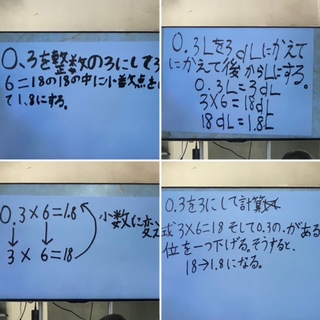 0.3を整数の3にして3
6=18の18の中に小数点を
て1.8にする。
0.3Lを3dLにかえて
にかえて後からLにする。
0.3L=3dL
3×6=18dL
18dL=1.8L
0.3×6=1.8
小数に変
3×6=18
0.3を3にして計算
式3×6=18そして0.3の.がある
位を一つ下げる。そうすると、
18→1.8になる。